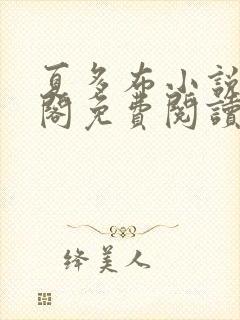 夏多布小說
閣免費閱讀
绛美人